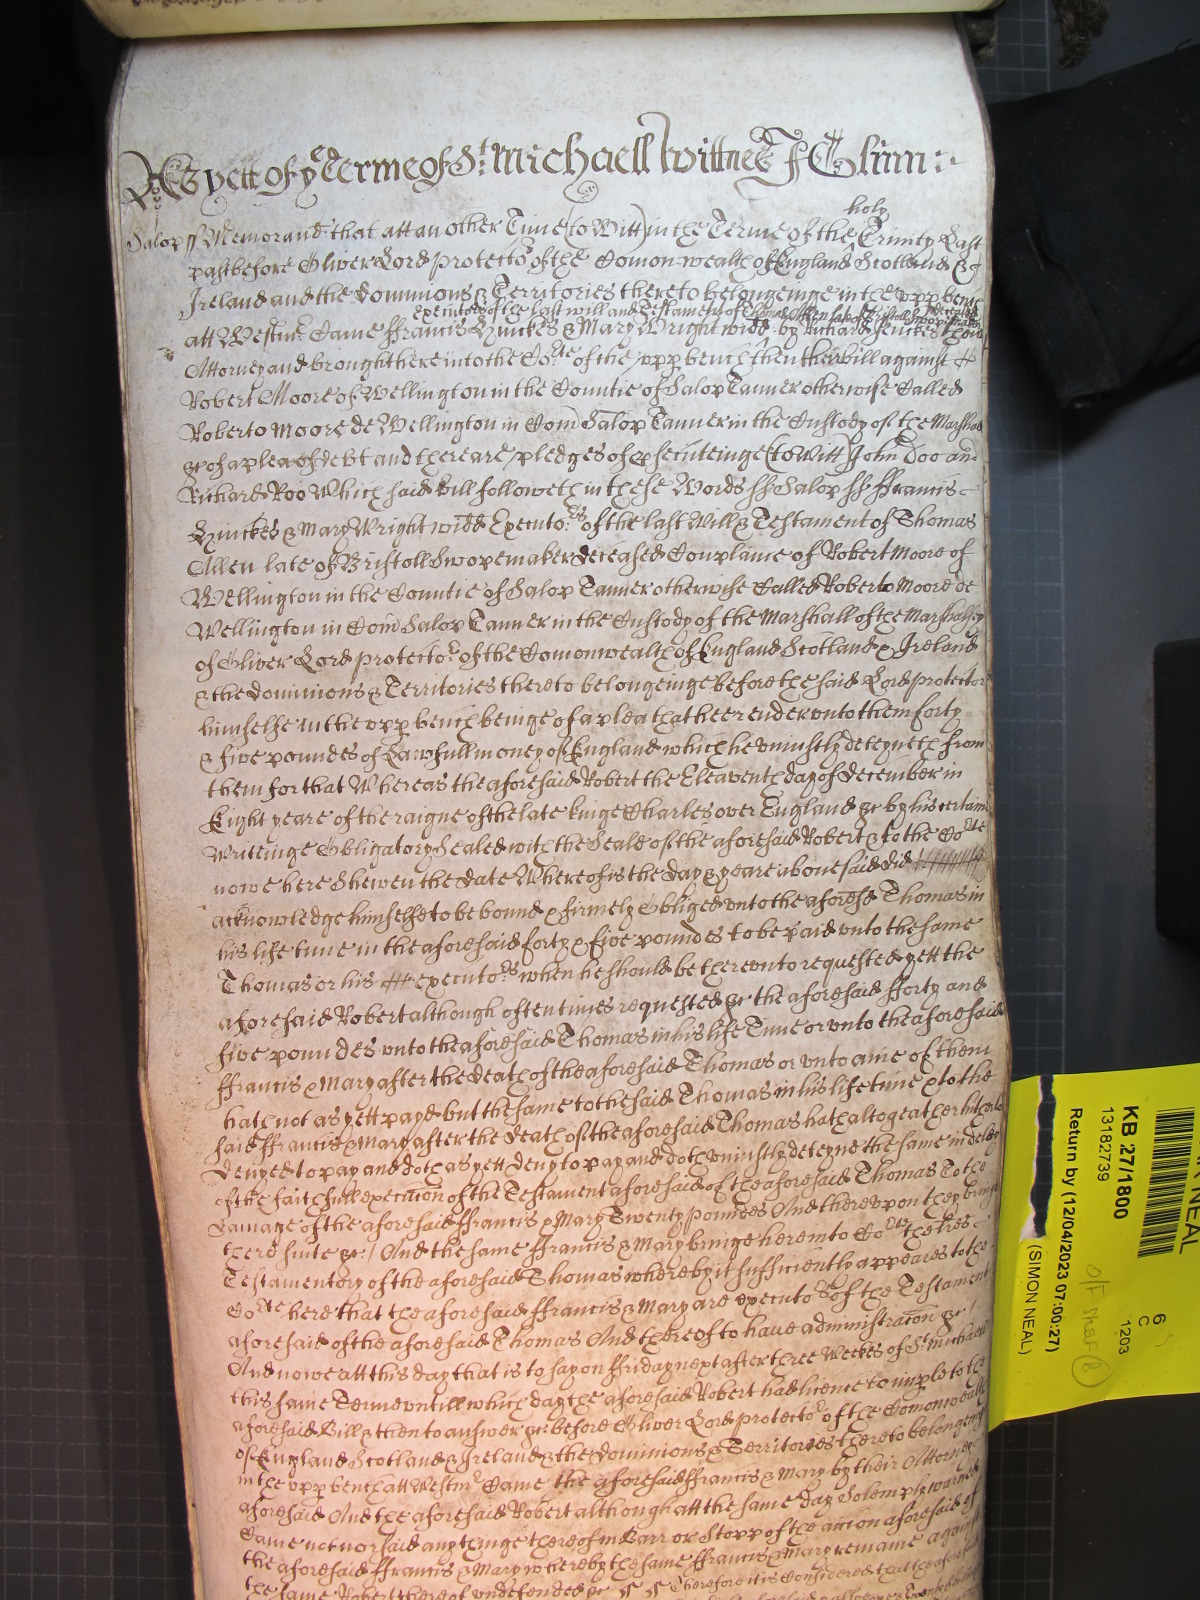 As yett of ye Terme of St: Michaell Wittnes J Glinn:
holy
Salop ss Memorand: that att an other Time (to Witt) in the Terme of the Trinity Last
past before Oliver Lord Protector of the Comonwealth of England Scotland &
Ireland and the Dominions & Territories thereto belongeinge in the upp bench
executors of the last will and Testament of Thomas Allen late of Bristoll deceased
att Westmr. Came Francis & Mary Wright widd by Richard their
Attorney and brought here into the Corte of the upp bench then their bill against
Robert Moore of Wellington in the Countie of Salop Tanner otherwise Called
Roberto Moore de Wellington in Com Salop Tanner in the Custody of the Marshall
&c of a plea of debt and there are pledges of psecuteinge (to Witt) John Doo and
Richard Roo Which said Bill followeth in these Words ss Salop ss Francis
& Mary Wright widd Executors of the last Will & Testament of Thomas
Allen late of Bristoll deceased Complaine of Robert Moore of
Wellington in the Countie of Salop Tanner otherwise Called Roberto Moore de
Wellington in Com Salop Tanner in the Custody of the Marshall of the Marshalsey
of Oliver Lord Protector of the Comonwealth of England Scotland & Ireland
& the Dominions & Territories thereto belongeinge before the said Lord Protector
himselfe in the upp bench beinge of a plea that hee render unto them forty
& five poundes of Lawfull money of England which he uniustly deteyneth from
them for that Whereas the aforesaid Robert the Eleaventh day of December in
Eight yeare of the raigne of the late kinge Charles over England &c by his certain
Writeinge Obligatory Sealed with the Seale of the aforesaid Robert & to the Corte
nowe here Shewen the date Whereof is the day & yeare above said did
acknowledge himselfe to be bound & firmely Obliged unto the aforesd Thomas in
his life time in the aforesaid forty & five poundes to be paid unto the same
Thomas or his executors when he should be thereunto requested yett the
aforesaid Robert although often times requested &c the aforesaid fforty and
five poundes unto the aforesaid Thomas in his life Time or unto the aforesaid
Francis & Mary after the death of the aforesaid Thomas or unto aine of them
hath not as yett payd but the same to the said Thomas in his life time & to the
said Francis & Mary after the death of the aforesaid Thomas hath altogeather hitherto
denyed to pay and doth as yett deny to pay and doth uniustly deteyne the same in delay
of the faithfull execution of the Testament aforesaid of the aforesaid Thomas To the
Damage of the aforesaid Francis & Mary Twenty poundes And thereupon they bringe
there suite &c / And the same Francis & Mary bringe here into Corte the lres
Testamentory of the aforesaid Thomas whereby it sufficiently appeares to the
Corte here that the aforesaid Francis & Mary are executors of the Testament
aforesaid of the aforesaid Thomas And thereof to have administracon &c /
And nowe att this day that is to say on Friday next after three Weekes of St Michaell
this same Terme untill which day the aforesaid Robert had licence to imple to the
aforesaid Bill & then to answer &c before Oliver Lord Protector of the Comonwealth
of England Scotland & Ireland & the Dominions & Territories thereto belongeinge
in the upp bench att Westmr Came the aforesaid Francis & Mary by their Attorney
aforesaid And the aforesaid Robert although att the same day Solemply warned
Came not nor said any thinge thereof in Barr or Stopp of the accion aforesaid of
the aforesaid Francis & Mary whereby the same Francis & Mary remaine against
the same Robert thereof undefended &c Therefore it is Considered that the aforesaid
NEAL
KB 27/1800
13182739
Return by (12/04/2023 07:00:27)
(SIMON NEAL)
6
C
1203